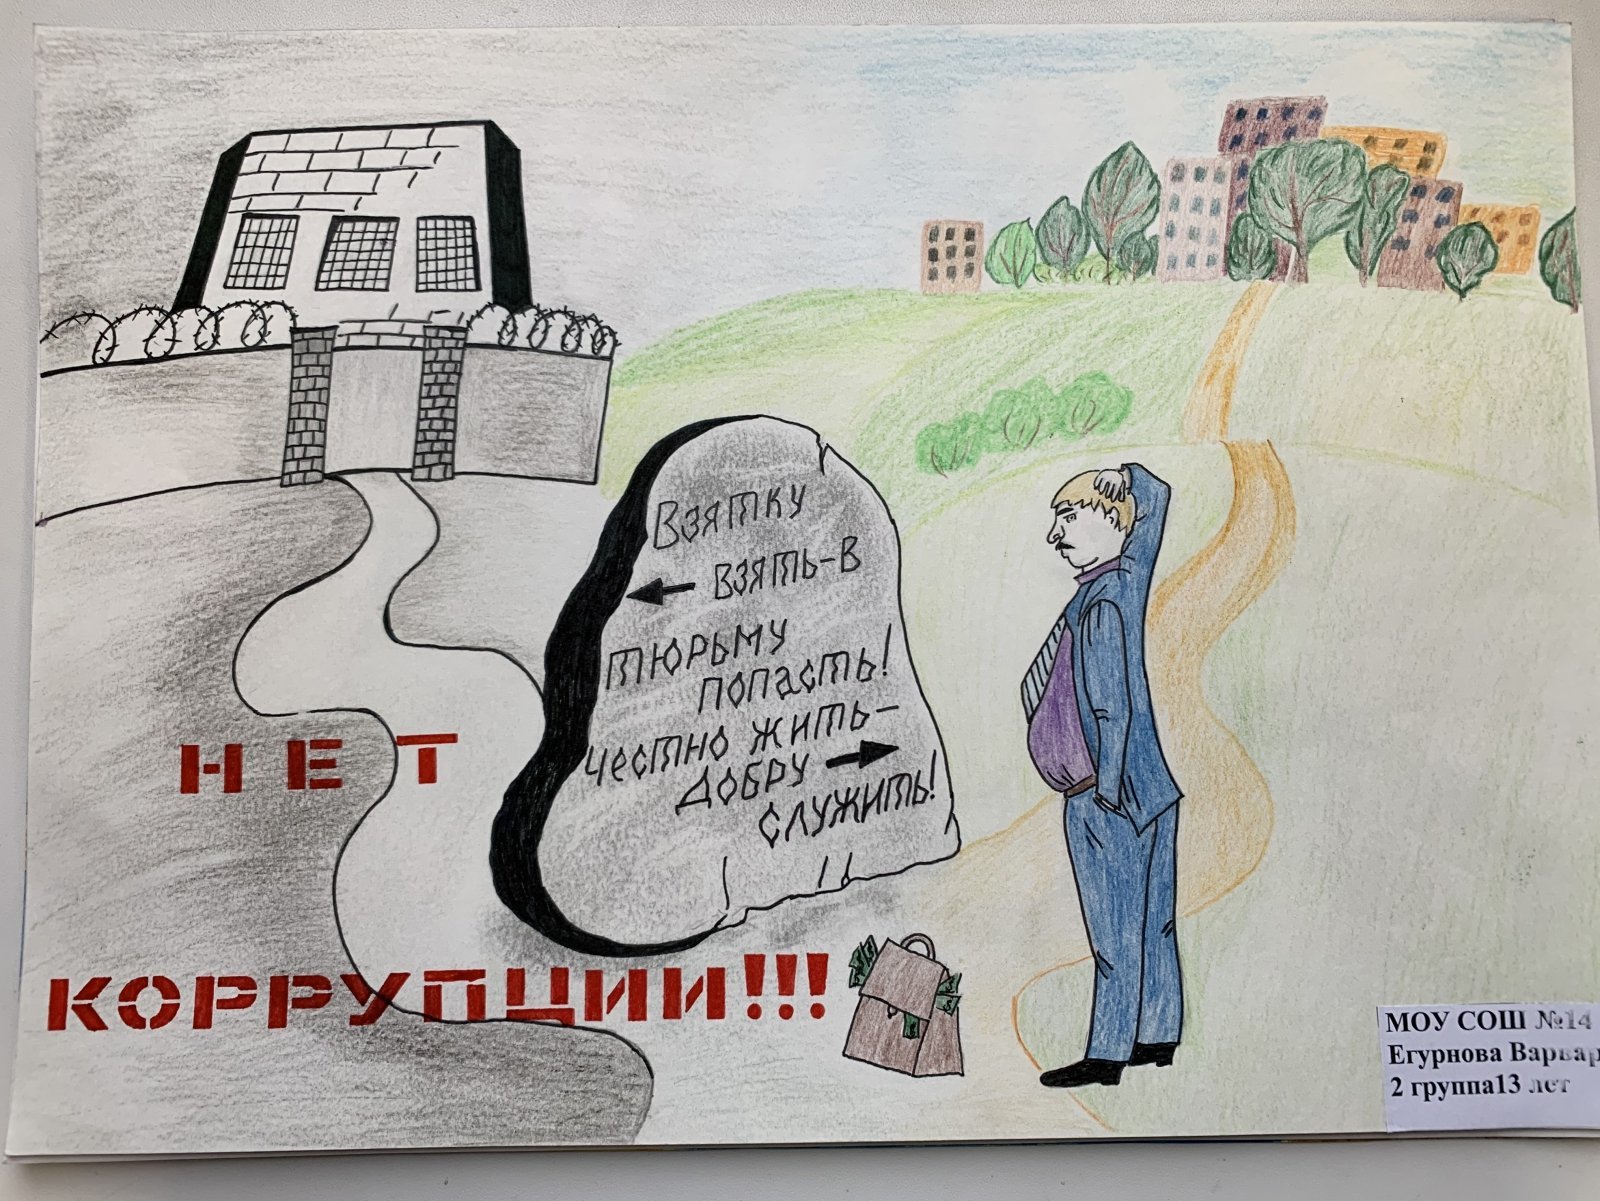 Взятку
взять-в
тюрьму
попасть!
Честно жить-
добру
служить!
НЕТ
КОРРУПЦИИ!!!
МОУ СОШ №14
Егурнова Варвар
2 группа13 лет